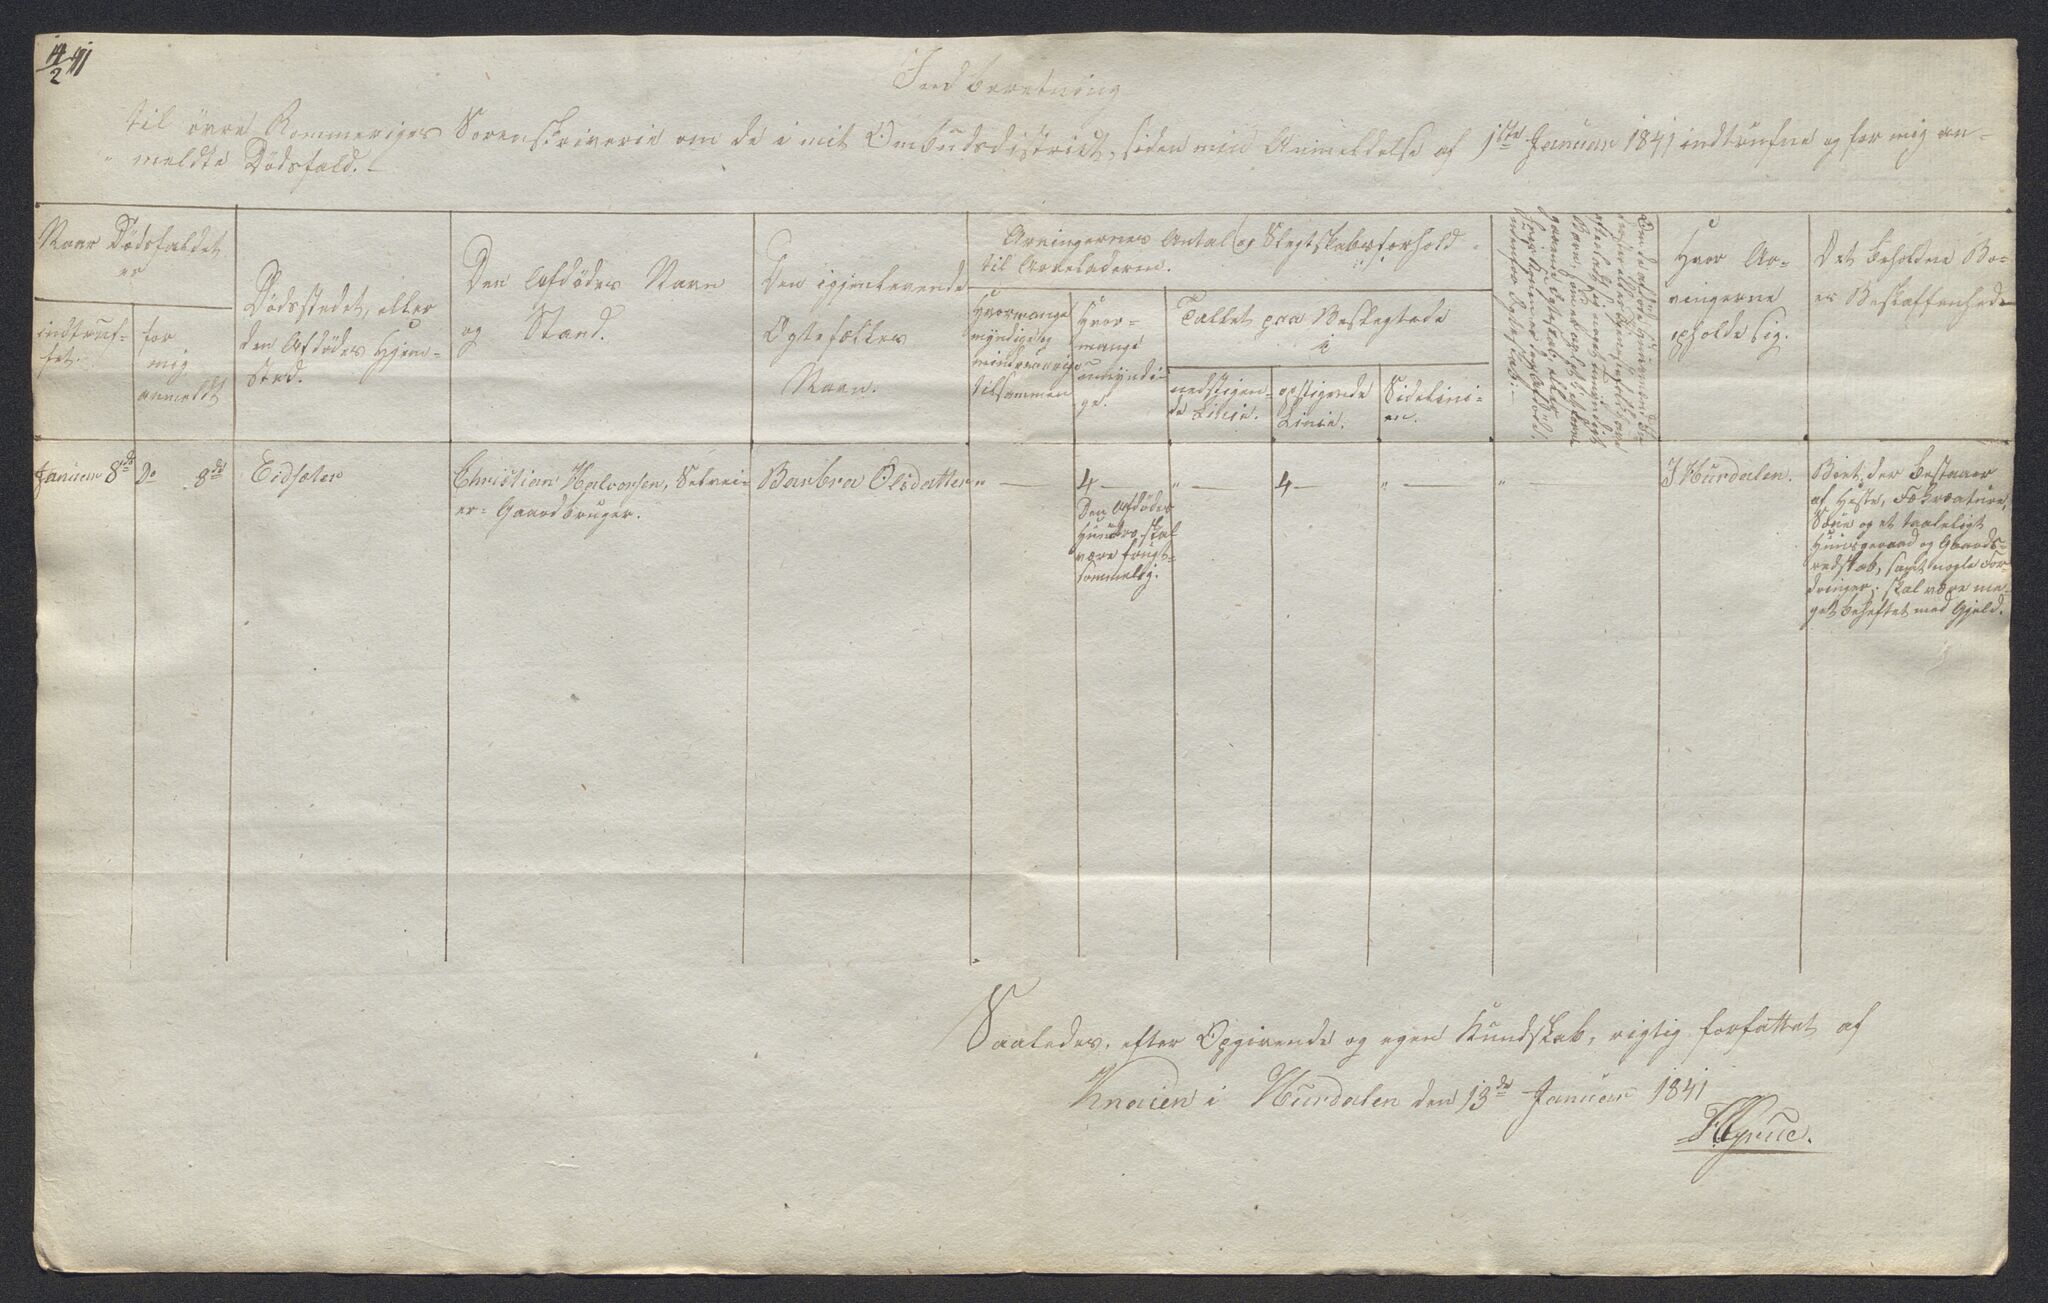 14/2 41
Indberetning
til övre Rommeriges Sorenskriverie om de i mit Ombudsdistrict, siden min Anmeldelse af 1ste Januar 1841 indtrufne og for mig an-
meldte Dödsfald.-
Naar Dödsfaldet
er
indtruf-
fet.
for
mig
anmeldt
Dödsstedet, eller
den Afdödes Hjem-
Sted.
Den Afdödes Navn
og Stand.
Den igjenlevende
Ægtefælles
Navn.
Arvingernes Antal og Slegtskabsforhold
til Arveladeren.
Hvormange
myndige og
mindreaarige
tilsammen
Hvor-
mange
umyndi-
ge.
Tallet paa Beslegtede
i
nedstigen-
de Linie.
opstigende
Linie.
Sidelini-
en.
Hvor Ar-
vingerne
opholde sig.
Det beholdne Bo-
es Beskaffenhed
Januar 8de
Do 8de
Eidsæter
Christian Halvorsen, Selvei-
er-Gaardbruger.
Barbra Olsdatter
" —
4 —
Den Afdödes
Hustru skal
være frugt-
sommelig.
" —
4 —
" —
" —
I Hurdalen.
Boet, der bestaaer
af Heste, Fækreature,
Söue og et taaleligt
Huusgeraad og Gaards-
redskab, samt nogle For-
dringer, skal være me-
get beheftet med Gjeld.
Saaledes, efter Opgivende og egen Kundskab, rigtig forfattet af
Knaien i Hurdalen den 13de Januar 1841